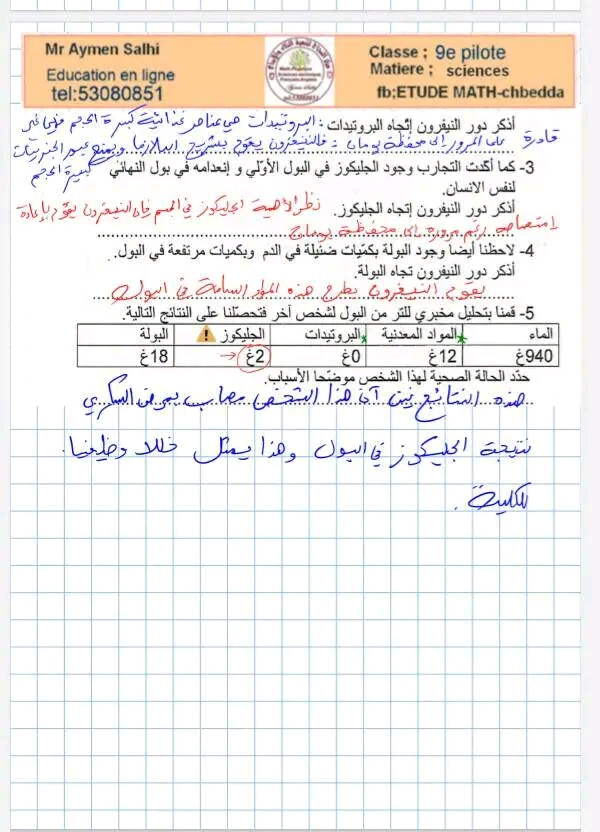 Mr Aymen Salhi
Education en ligne
tel:53080851
Classe ; 9e pilote
Matiere ; sciences
fb;ETUDE MATH-chbedda
أذكر دور النيفرون إتجاه البروتيدات: البروتيدات هي عناصر غذائية كبيرة الحجم فهي غير
قادرة على المرور إلى محفظة بومان: فالنيفرون يقوم بترشيح البلازما ويمنع عبور الجزيئات
كبيرة الحجم
3- كما أكدت التجارب وجود الجليكوز في البول الأوّلي و إنعدامه في بول النهائي
لنفس الانسان.
أذكر دور النيفرون إتجاه الجليكوز. نظرا لأهمية الجليكوز في الجسم فإن النيفرون يقوم بإعادة
إمتصاصه رغم مروره إلى محفظة بومان
4- لاحظنا أيضا وجود البولة بكمّيات ضئيلة في الدم وبكميات مرتفعة في البول.
أذكر دور النيفرون تجاه البولة.
يقوم النيفرون بطرح هذه المواد السامة في البول
5- قمنا بتحليل مخبري للتر من البول لشخص أخر فتحصّلنا على النتائج التالية.
الماء المواد المعدنية البروتيدات الجليكوز البولة
940غ 12غ 0غ 2غ 18غ
حدّد الحالة الصحية لهذا الشخص موضّحا الأسباب.
هذه النتائج تبين أن هذا الشخص مصاب بمرض السكري
نتيجة الجليكوز في البول وهذا يمثل خللا وظيفيا
للكلية.